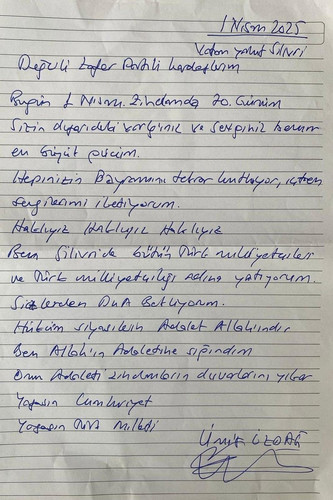 1 Nisan 2025
Vatan yahut Silivri
Değerli Zafer Partili kardeşlerim
Bugün 1 Nisan. Zindanda 70. Günüm
Sizin dışarıdaki varlığınız ve sevginiz benim
en büyük gücüm.
Hepinizin Bayramını tekrar kutluyor, içten
sevgilerimi iletiyorum.
Haklıyız Haklıyız Haklıyız
Ben Silivri'de bütün Türk milliyetçileri
ve Türk milliyetçiliği adına yatıyorum.
Sizlerden Dua Bekliyorum.
Hüküm siyasilerin Adalet Allah'ındır
Ben Allah'ın Adaletine sığındım
Onun Adaleti zindanların duvarlarını yıkar
Yaşasın Cumhuriyet
Yaşasın Milleti
Ümit ÖZDAĞ